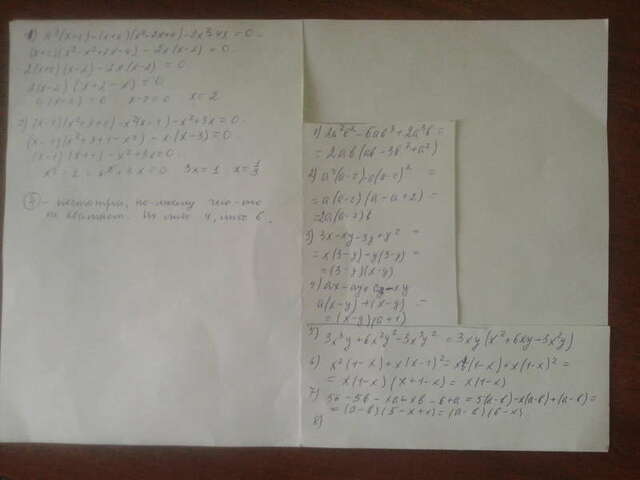 1) x²(x+2)-(x+2)(x²-2x+4)-2x²+4x=0.
(x+2)(x²-x²+2x-4)-2x(x-2)=0.
2(x+2)(x-2)-2x(x-2)=0
2(x-2)(x+2-x)=0
x-2=0 x=2
2) (x-1)(x²+x+1)-x²(x-1)-x²+3x=0.
(x-1)(x²+x+1-x²)-x(x-3)=0.
(x-1)(x+1)-x²+3x=0.
x²-1-x²+3x=0 3x=1 x=1/3
- посмотри, по-моему чего-то
не хватает. Или 4, или 6.
1) 2a²b²-6ab³+2a³b=
=2ab(ab-3b²+a²)
2) a²(a-2)-a(a-2)² =
=2a(a-2)
3) 3x-xy-3y+y² =
=x(3-y)-y(3-y) =
=(3-y)(x-y)
4) ax-ay+x-y
a(x-y)+(x-y) =
=(x-y)(a+1)
5) 3x³y+6x²y²-3x³y² = 3xy(x²+6xy-3x²y)
6) x²(1-x)+x(x-1)²=x²(1-x)+x(1-x)²=
=x(1-x)(x+1-x)=x(1-x)
7) 5a-5b-xa+xb-b+a=5(a-b)-x(a-b)+(a-b)=
=(a-b)(5-x+1)=(a-b)(6-x)
8)